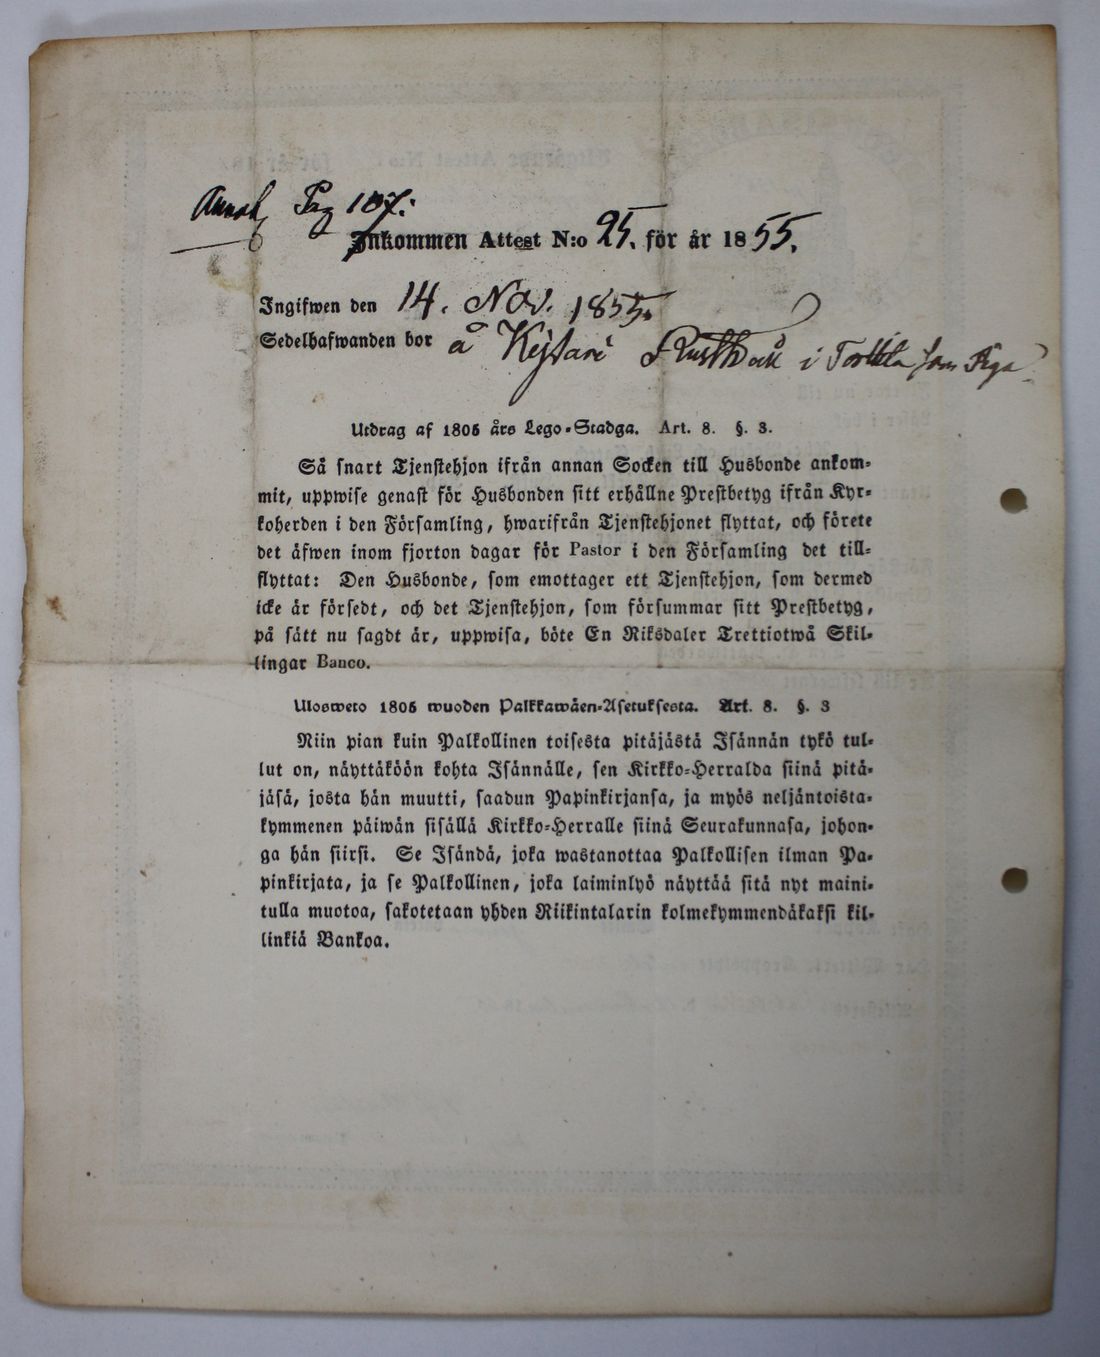 Pag 107.
Inkommen Attest N:o 25. för år 1855.
Ingifwen den 14. Nov. 1855.
Sedelhafwanden bor å Kejsari Rusthåll i Torttila som Piga
Utdrag af 1805 års Lego-Stadga. Art. 8. §. 3.
Så snart Tjenstehjon ifrån annan Socken till Husbonde ankom-
mit, uppwise genast för Husbonden sitt erhållne Prestbetyg ifrån Kyr-
koherden i den Församling, hwarifrån Tjenstehjonet flyttat, och förete
det äfwen inom fjorton dagar för Pastor i den Församling det till-
flyttat: Den Husbonde, som emottager ett Tjenstehjon, som dermed
icke är försedt, och det Tjenstehjon, som försummar sitt Prestbetyg,
på sätt nu sagdt är, uppwisa, böte En Riksdaler Trettiotwå Skil-
lingar Banco.
Ulosweto 1805 wuoden Palkkawäen-Asetuksesta. Art. 8. §. 3
Niin pian kuin Palkollinen toisesta pitäjästä Isännän tykö tul-
lut on, näyttäköön kohta Isännälle, sen Kirkko-Herralda siinä pitä-
jäsä, josta hän muutti, saadun Papinkirjansa, ja myös neljäntoista-
kymmenen päiwän sisällä Kirkko-Herralle siinä Seurakunnasa, johon-
ga hän siirsi. Se Isändä, joka wastanottaa Palkollisen ilman Pa-
pinkirjata, ja se Palkollinen, joka laiminlyö näyttää sitä nyt maini-
tulla muotoa, sakotetaan yhden Riikintalarin kolmekymmendäkaksi kil-
linkiä Bankoa.